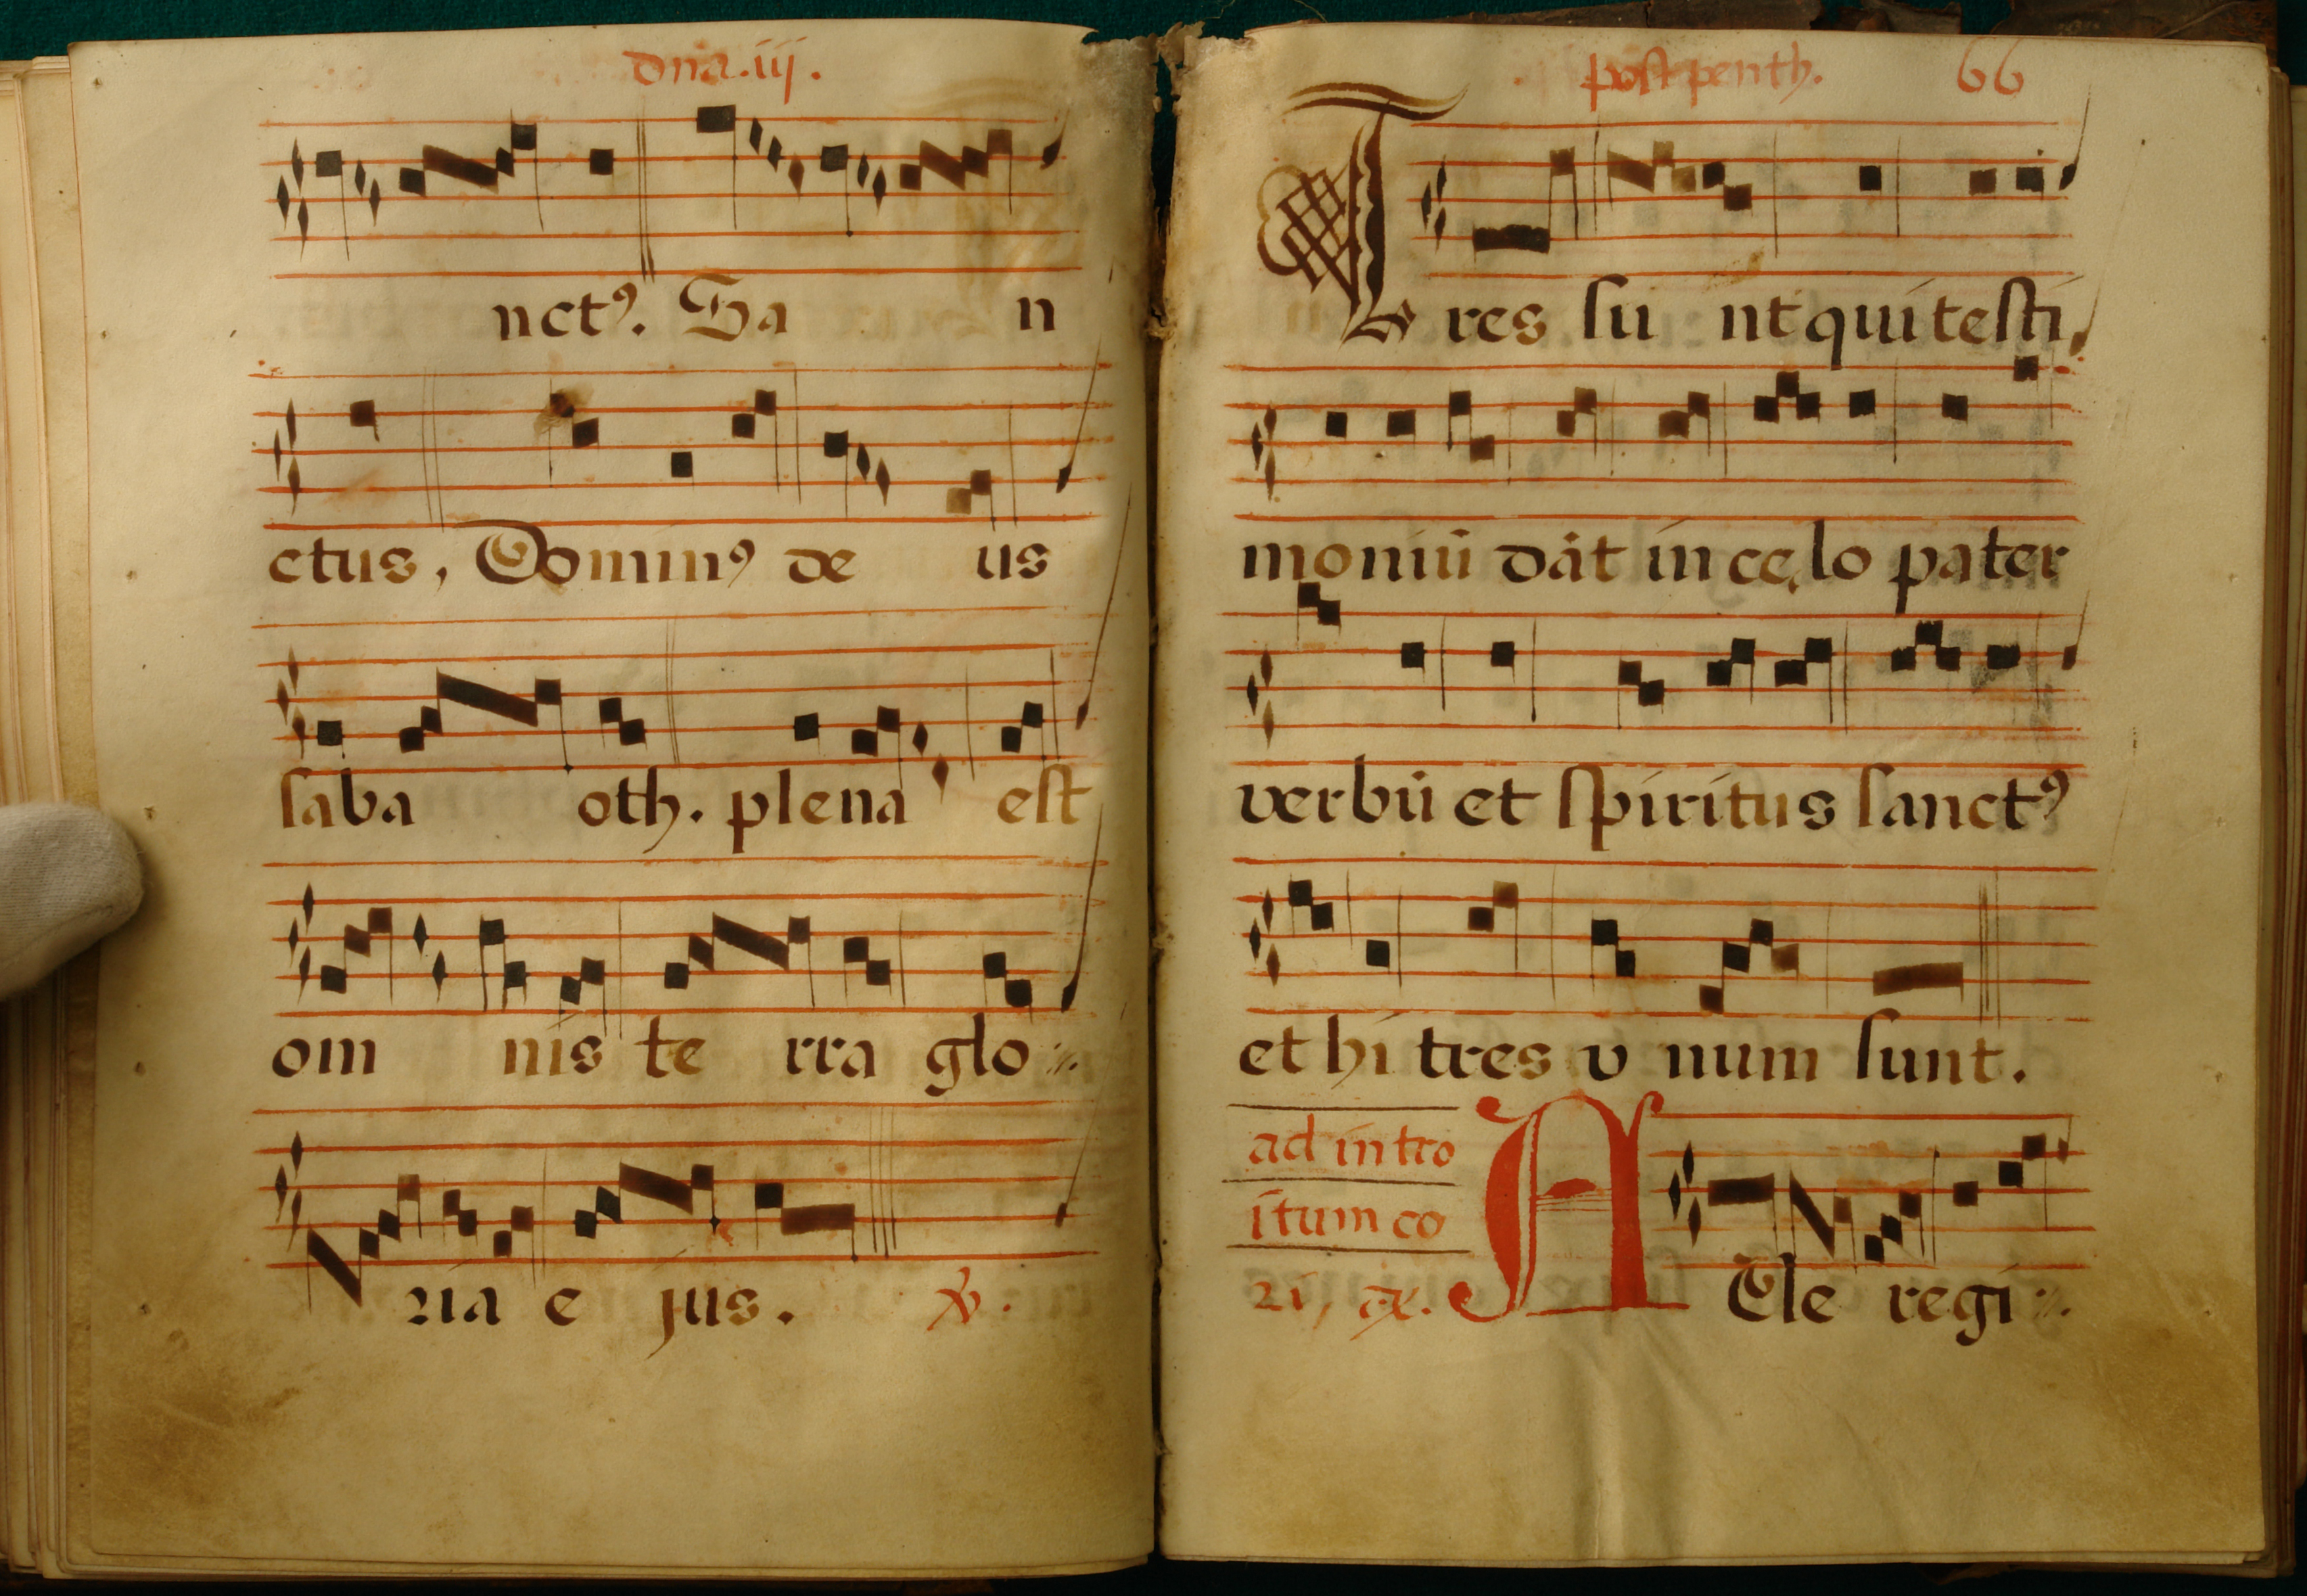 dna.iij.
nctꝰ. Sa n
ctus, Dominꝰ de us
saba oth. plena est
om nis te rra glo
ria e jus. ℣.
post penth. 66
Tres su nt qui testi
moniū dāt in cęlo pater
verbū et spiritus sanctꝰ
et hi tres v num sunt.
ad intro
itum co
ri, ex. A Ele regi